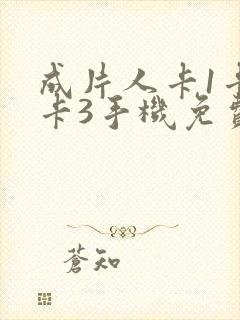 成片人卡1卡
卡3手機免費
蒼知